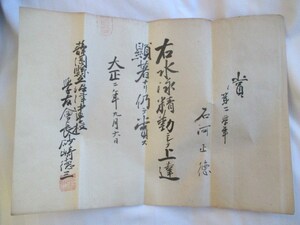 賞
第二学年
石河正德
右水泳精勤シテ上達
顕著ナリ仍テ賞ス
大正二年九月六日
静岡縣立沼津中學校
長